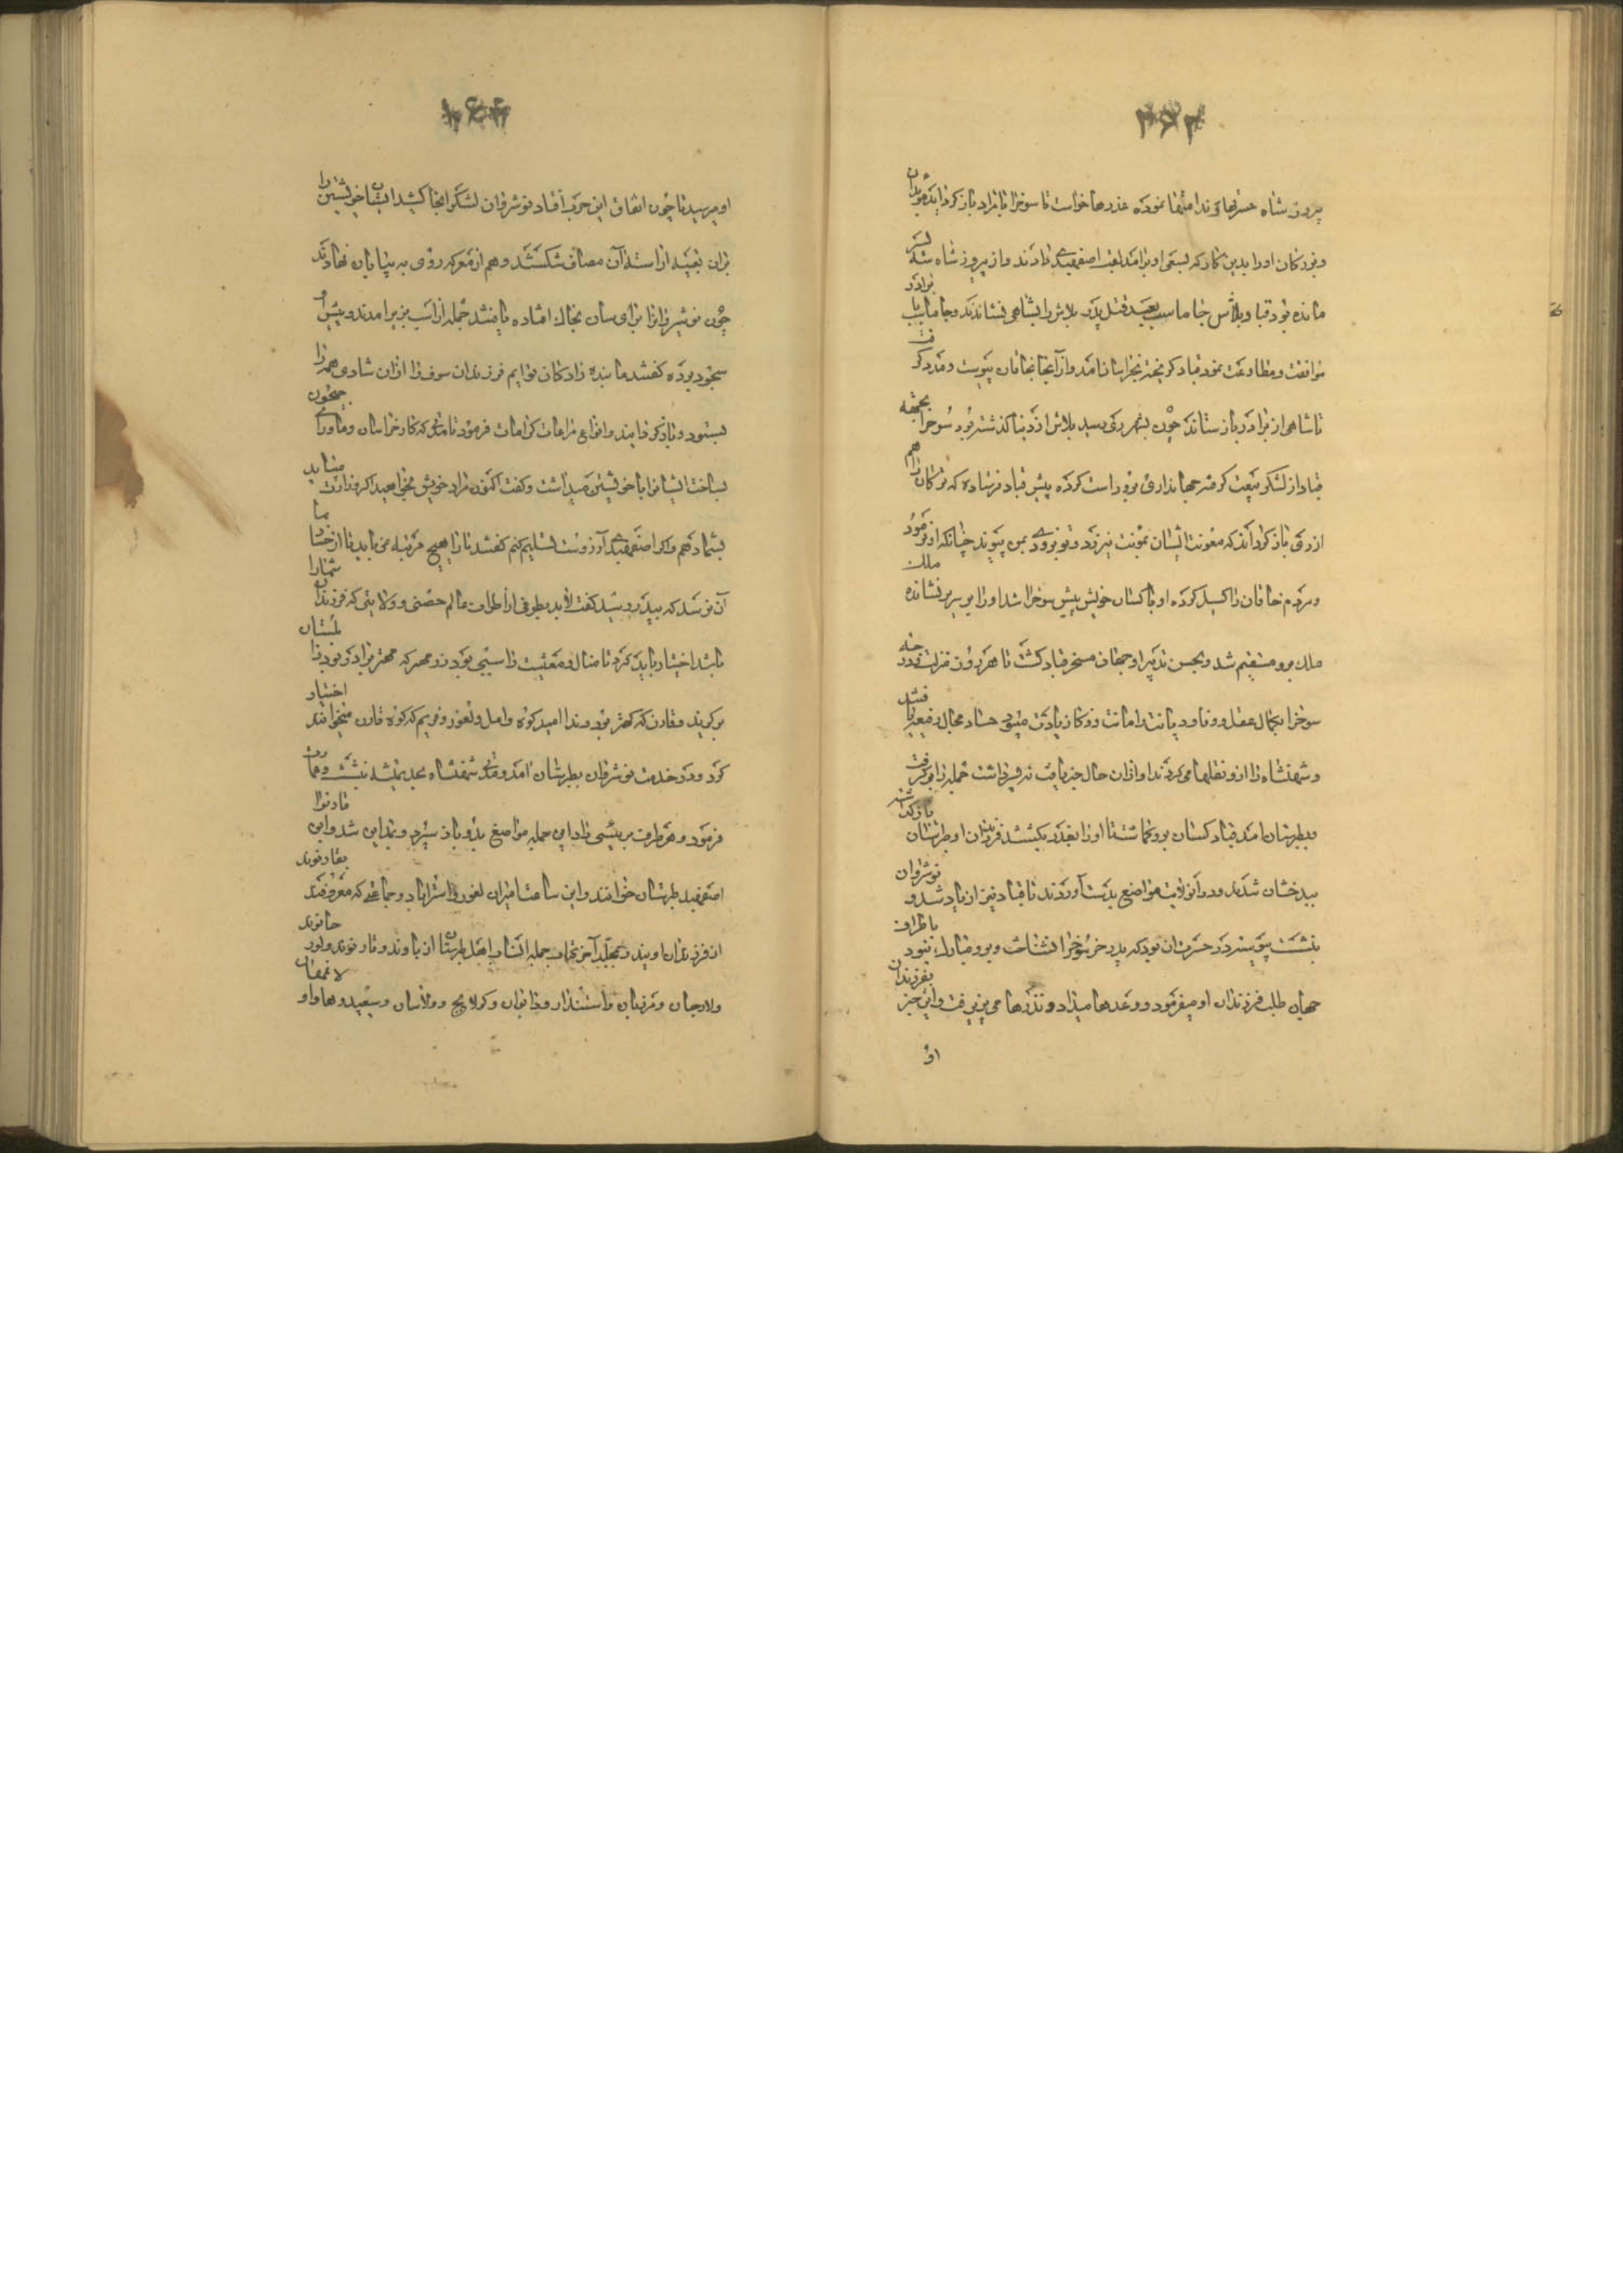 ۲۶۲
پیروز شاه حسرتها خورند امتها نموده عذرها خواست تا سوخرا با مراد باز کردانید موبدان
و بزرکان اورا بدین کار که بسعی او برامد لقب اصفهبدی دادند و از پیروز شاه سه پسر
مانده بود قباد و بلاش و جاماسب بعد قتل پدر بلاش را بشاهی نشاندند و جاماسب با برادر
موافقت و مطاوعت نمود قباد کریخته بخراسان امد و از آنجا بخاقان پیوست و مدد کرفت
تا شاهی از برادر باز ستاند چون بشهر ری رسید بلاش از دنیا کذشته بود سوخرا بجهة
قباد از لشکر بیعت کرفته جهانداری برو راست کرده پیش قباد فرستاده که ترکان را هم
از ری باز کرداند که معونت ایشان بمونت نیرزد و تو بزودی بمن پیوند چنانکه او فرمود
و مردم خاقان را کسیل کرده او با کسان خویش پیش سوخرا شد اورا بر سریر نشانده ملک
ملک برو مستقیم شد و بحسن تدبیر او جهان مسخر قباد کشت تا هر روز منزلت و درجه
سوخرا بکمال عقل و وفا و دیانت و امانت و زکا زیادت میبود حساد مجال وقیعت یافتند
و شهنشاه را ازو نقلها می کردند او ازان حال خبر یافت نه پسر داشت جمله را بر کرفت
و بطبرستان امد قباد کسان برو کماشت تا اورا بغدر بکشتند فرزندان او طبرستان باز کذاشته
ببدخشان شدند و در آن ولایت مواضع بدست آوردند تا قباد نیز از یاد شد و نوشروان
بنشست پیوسته در حسرت آن بود که پدر حق سوخرا نشناخت و برو مبارک نبود باطراف
جهان طلب فرزندان او میفرمود و وعدها میداد و نذرها می پذیرفت و این خبر بفرزندان
او
۲۶۳
او میرسید تا چون اتفاق این حرب افتاد نوشروان لشکر انجا کشید ایشان خویشتن را
بران تعبیه اراسته آن مصاف شکستند و هم از معرکه روی به بیابان نهادند
چون نوشیروانرا برای سان بخاک افتاده یافتند جمله از اسب بزیر امدند و پیش او
سجود برده کفتند ما بنده زادکان توایم فرزندان سوخرا ازان شادی همه را
بستود و باز کردانید و انواع مراعات و کرامات فرمود تا مدتی که کار خراسان و ماوراء جیحون
بساخت ایشانرا با خویشتن میداشت و کفت اکنون مراد خویش بخواهید اکر وزارت میباید
بشما دهم و اکر اصفهبدی آرزوست تسلیم کنم کفتند ما را هیچ مرتبه نمی باید تا از حساد بما
آن نرسد که بپدر رسید کفت لابد بطرفی از اطراف عالم حصنی و ولایتی که فرزندان شما را
باشد اختیار باید کرد تا منال و معیشت را سببی بود زرمهر که مهتر برادر بود زابلستان
بر کزید و قارن که کهتر بود وندا امید کوه و امل و لفور و فریم که کوه قارن میخوانند اختیار
کرد و در خدمت نوشروان بطبرستان امد و مدتی شهنشاه بحد تمیشه نشست و عمارت
فرمود و هر طرف برئیسی داد این جمله مواضع بدو باز سپرد و بمداین شد و این قارنرا
اصفهبد طبرستان خوانند و این ساعت امیران لفور و استراباد و جماعتی که معروفند بقارنوند
از فرزندان اویند و بمجلد آخر نجات جمله انساب اهل طبرستان از باوند و قارنوند و لور جانوند
ولارجان و مرزبان و استندار و دابوان و کولایج و ولاسان و سعیدوها و او لا مهتان